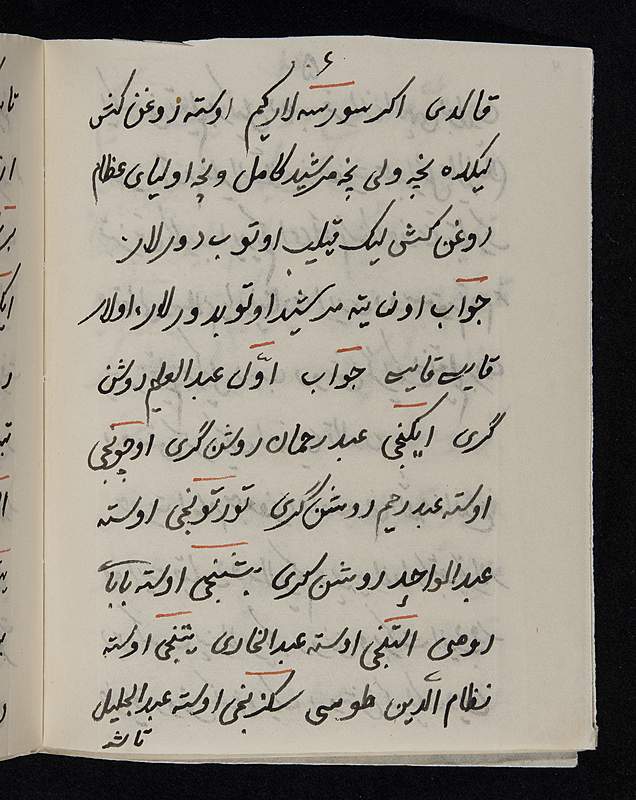 ۶
قالدی اکر سورسه‌لار کیم اوسته روغن کش
لیکده نچه ولی نچه مرشید کامل و نچه اولیای عظام
روغن کش لیک قیلیب اوتوب دورلار
جواب اون یته مرشید اوتوبدورلار، اولار
قایسی قایسی جواب اوّل عبدالعلیم روشن
گری ایکنجی عبدرحمان روشن گری اوچونجی
اوسته عبدرحیم روشن گری تورتونجی اوسته
عبدالواحد روشن گری بشینجی اوسته بابا
رومی التنجی اوسته عبدالخاری یتنجی اوسته
نظام الّدین طوسی سکزنجی اوسته عبدالجلیل